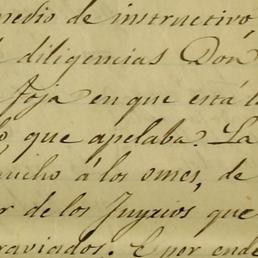 medio de instructivo
diligencias Don
foja en que está l
que apelaba. La
á los omes, de
r de los Juyzios que
raviados. E por ende